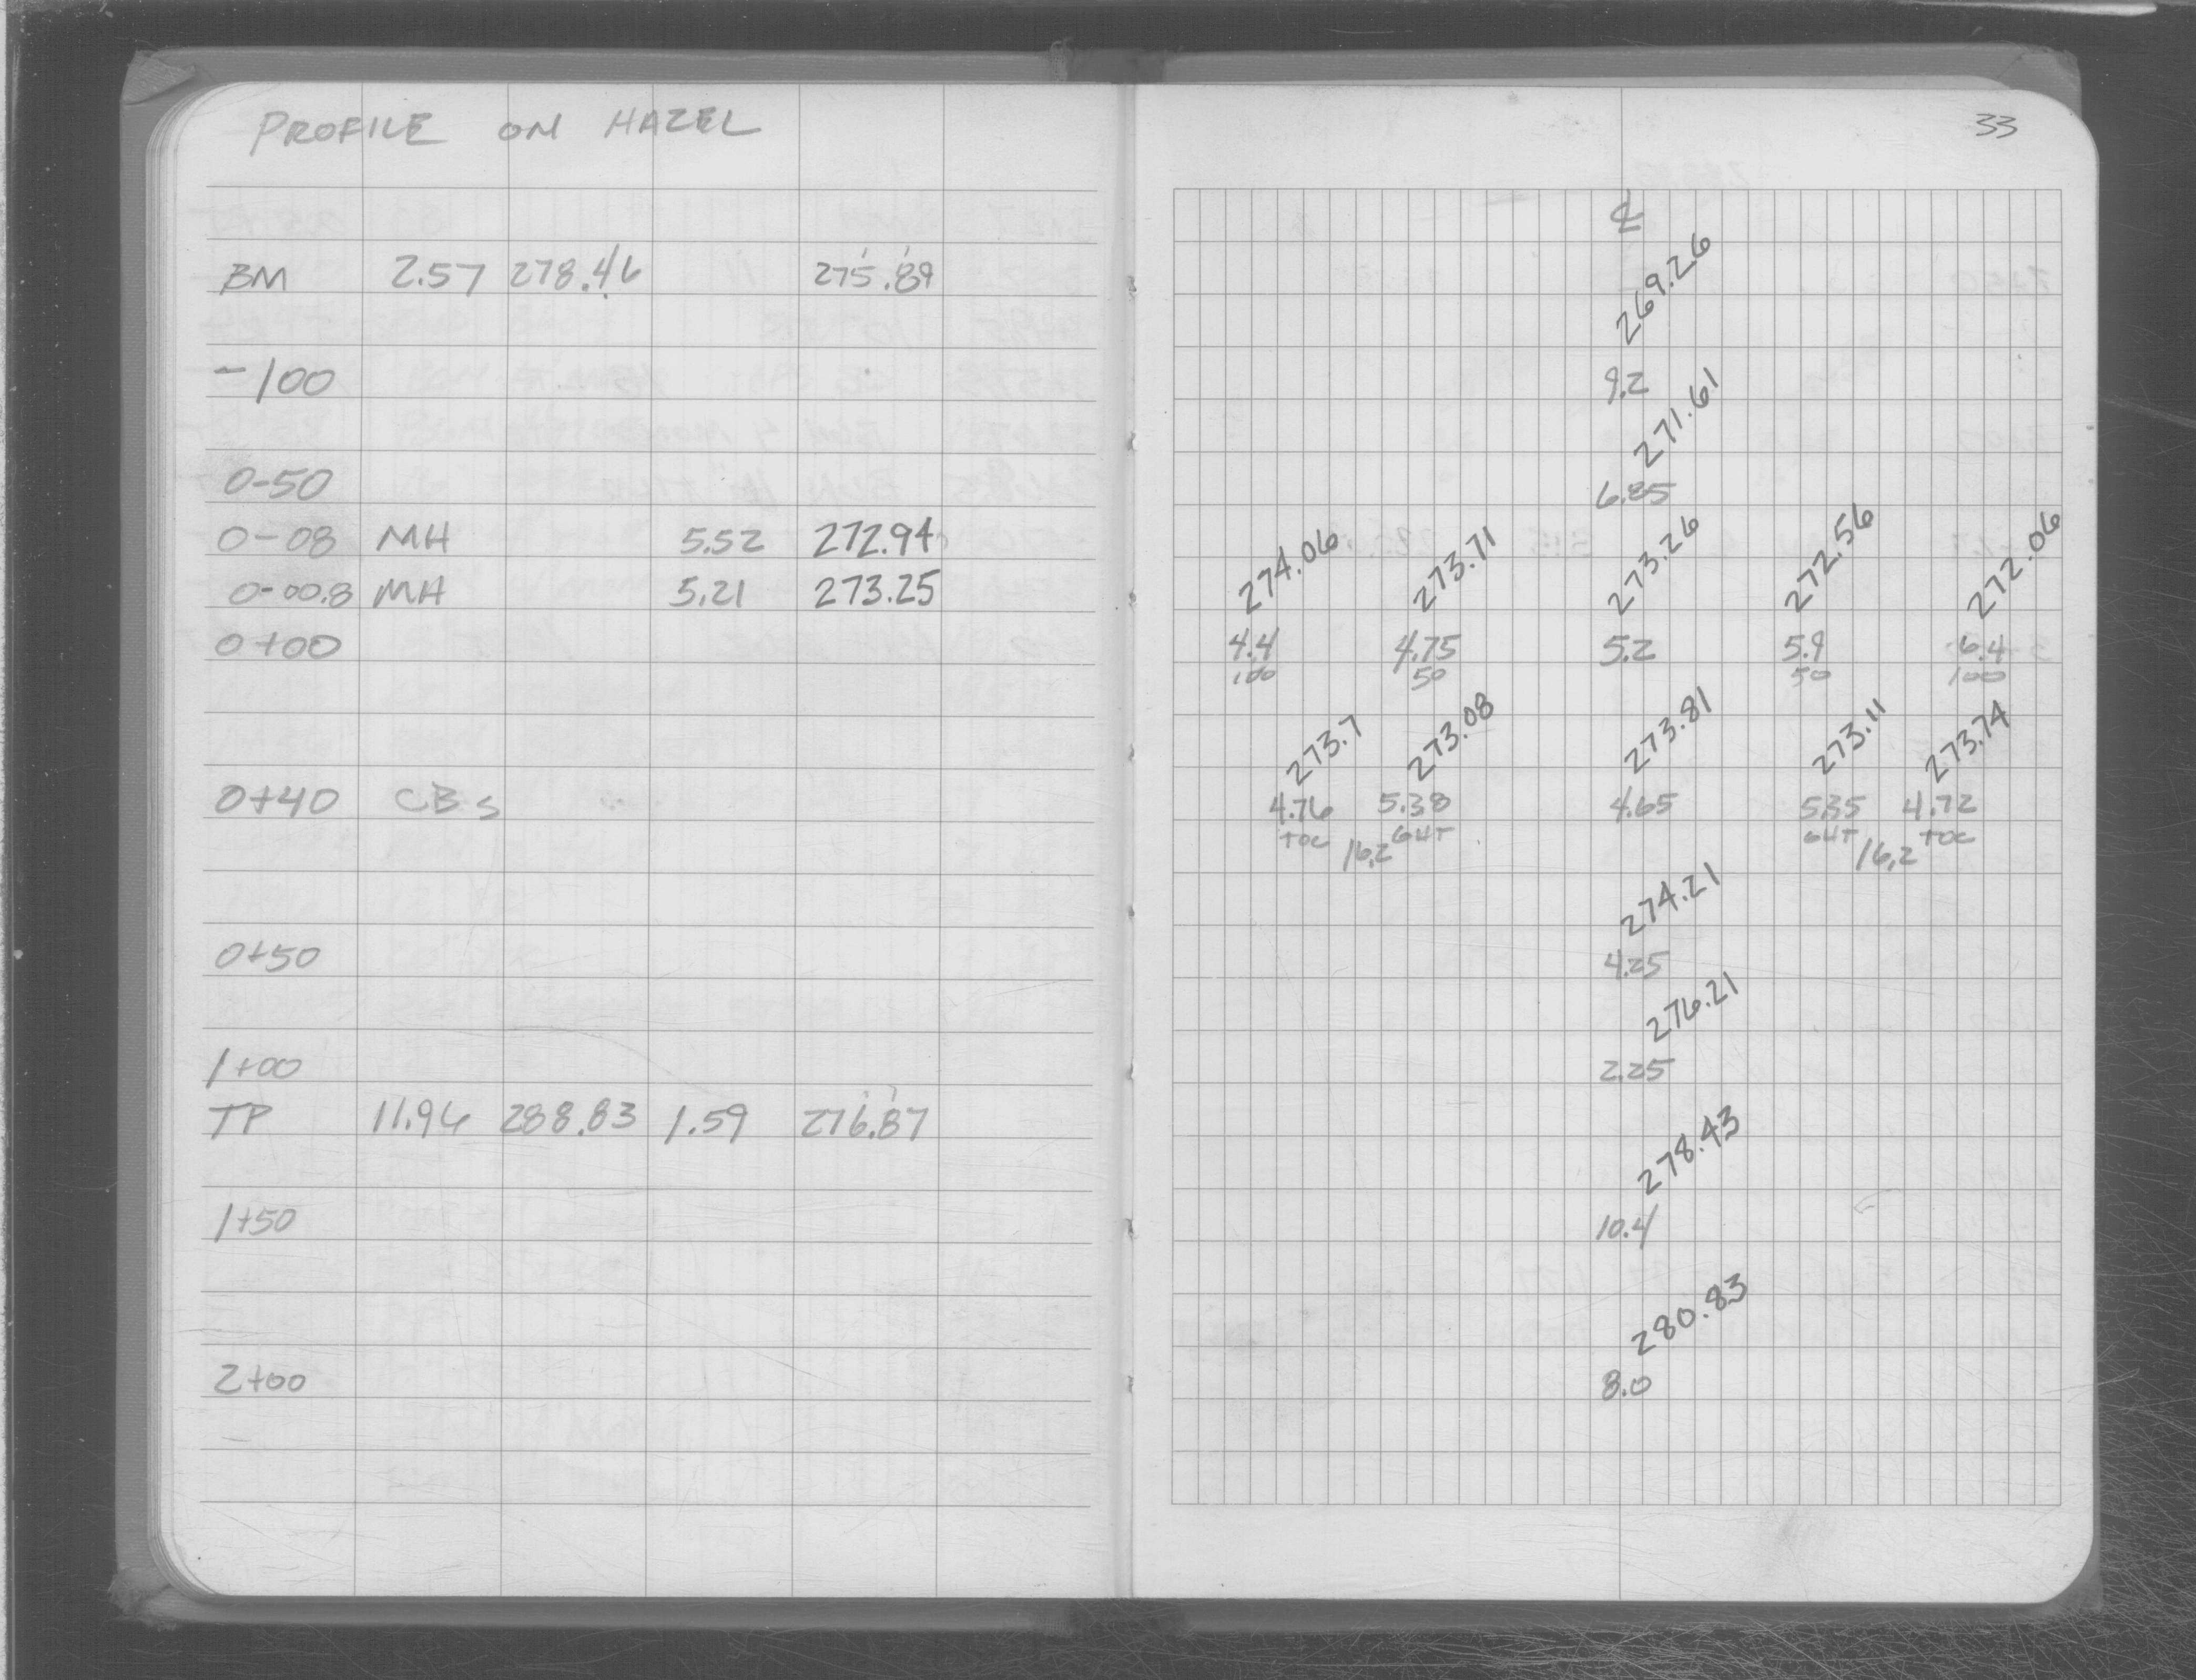 PROFILE ON HAZEL
33
℄
BM 2.57 278.46 275.89
269.26
-100 9.2
271.61
0-50 6.85
0-08 MH 5.52 272.94
0-00.8 MH 5.21 273.25
274.06 273.71 273.26 272.56 272.06
0+00 4.4 4.75 5.2 5.9 6.4
100 50 50 100
273.7 273.08 273.81 273.11 273.74
0+40 CBs 4.76 5.38 4.65 5.35 4.72
TOC 16.2 GUT GUT 16.2 TOC
274.21
0+50 4.25
276.21
1+00 2.25
TP 11.96 288.83 1.59 276.87
278.43
1+50 10.4
280.83
2+00 8.0